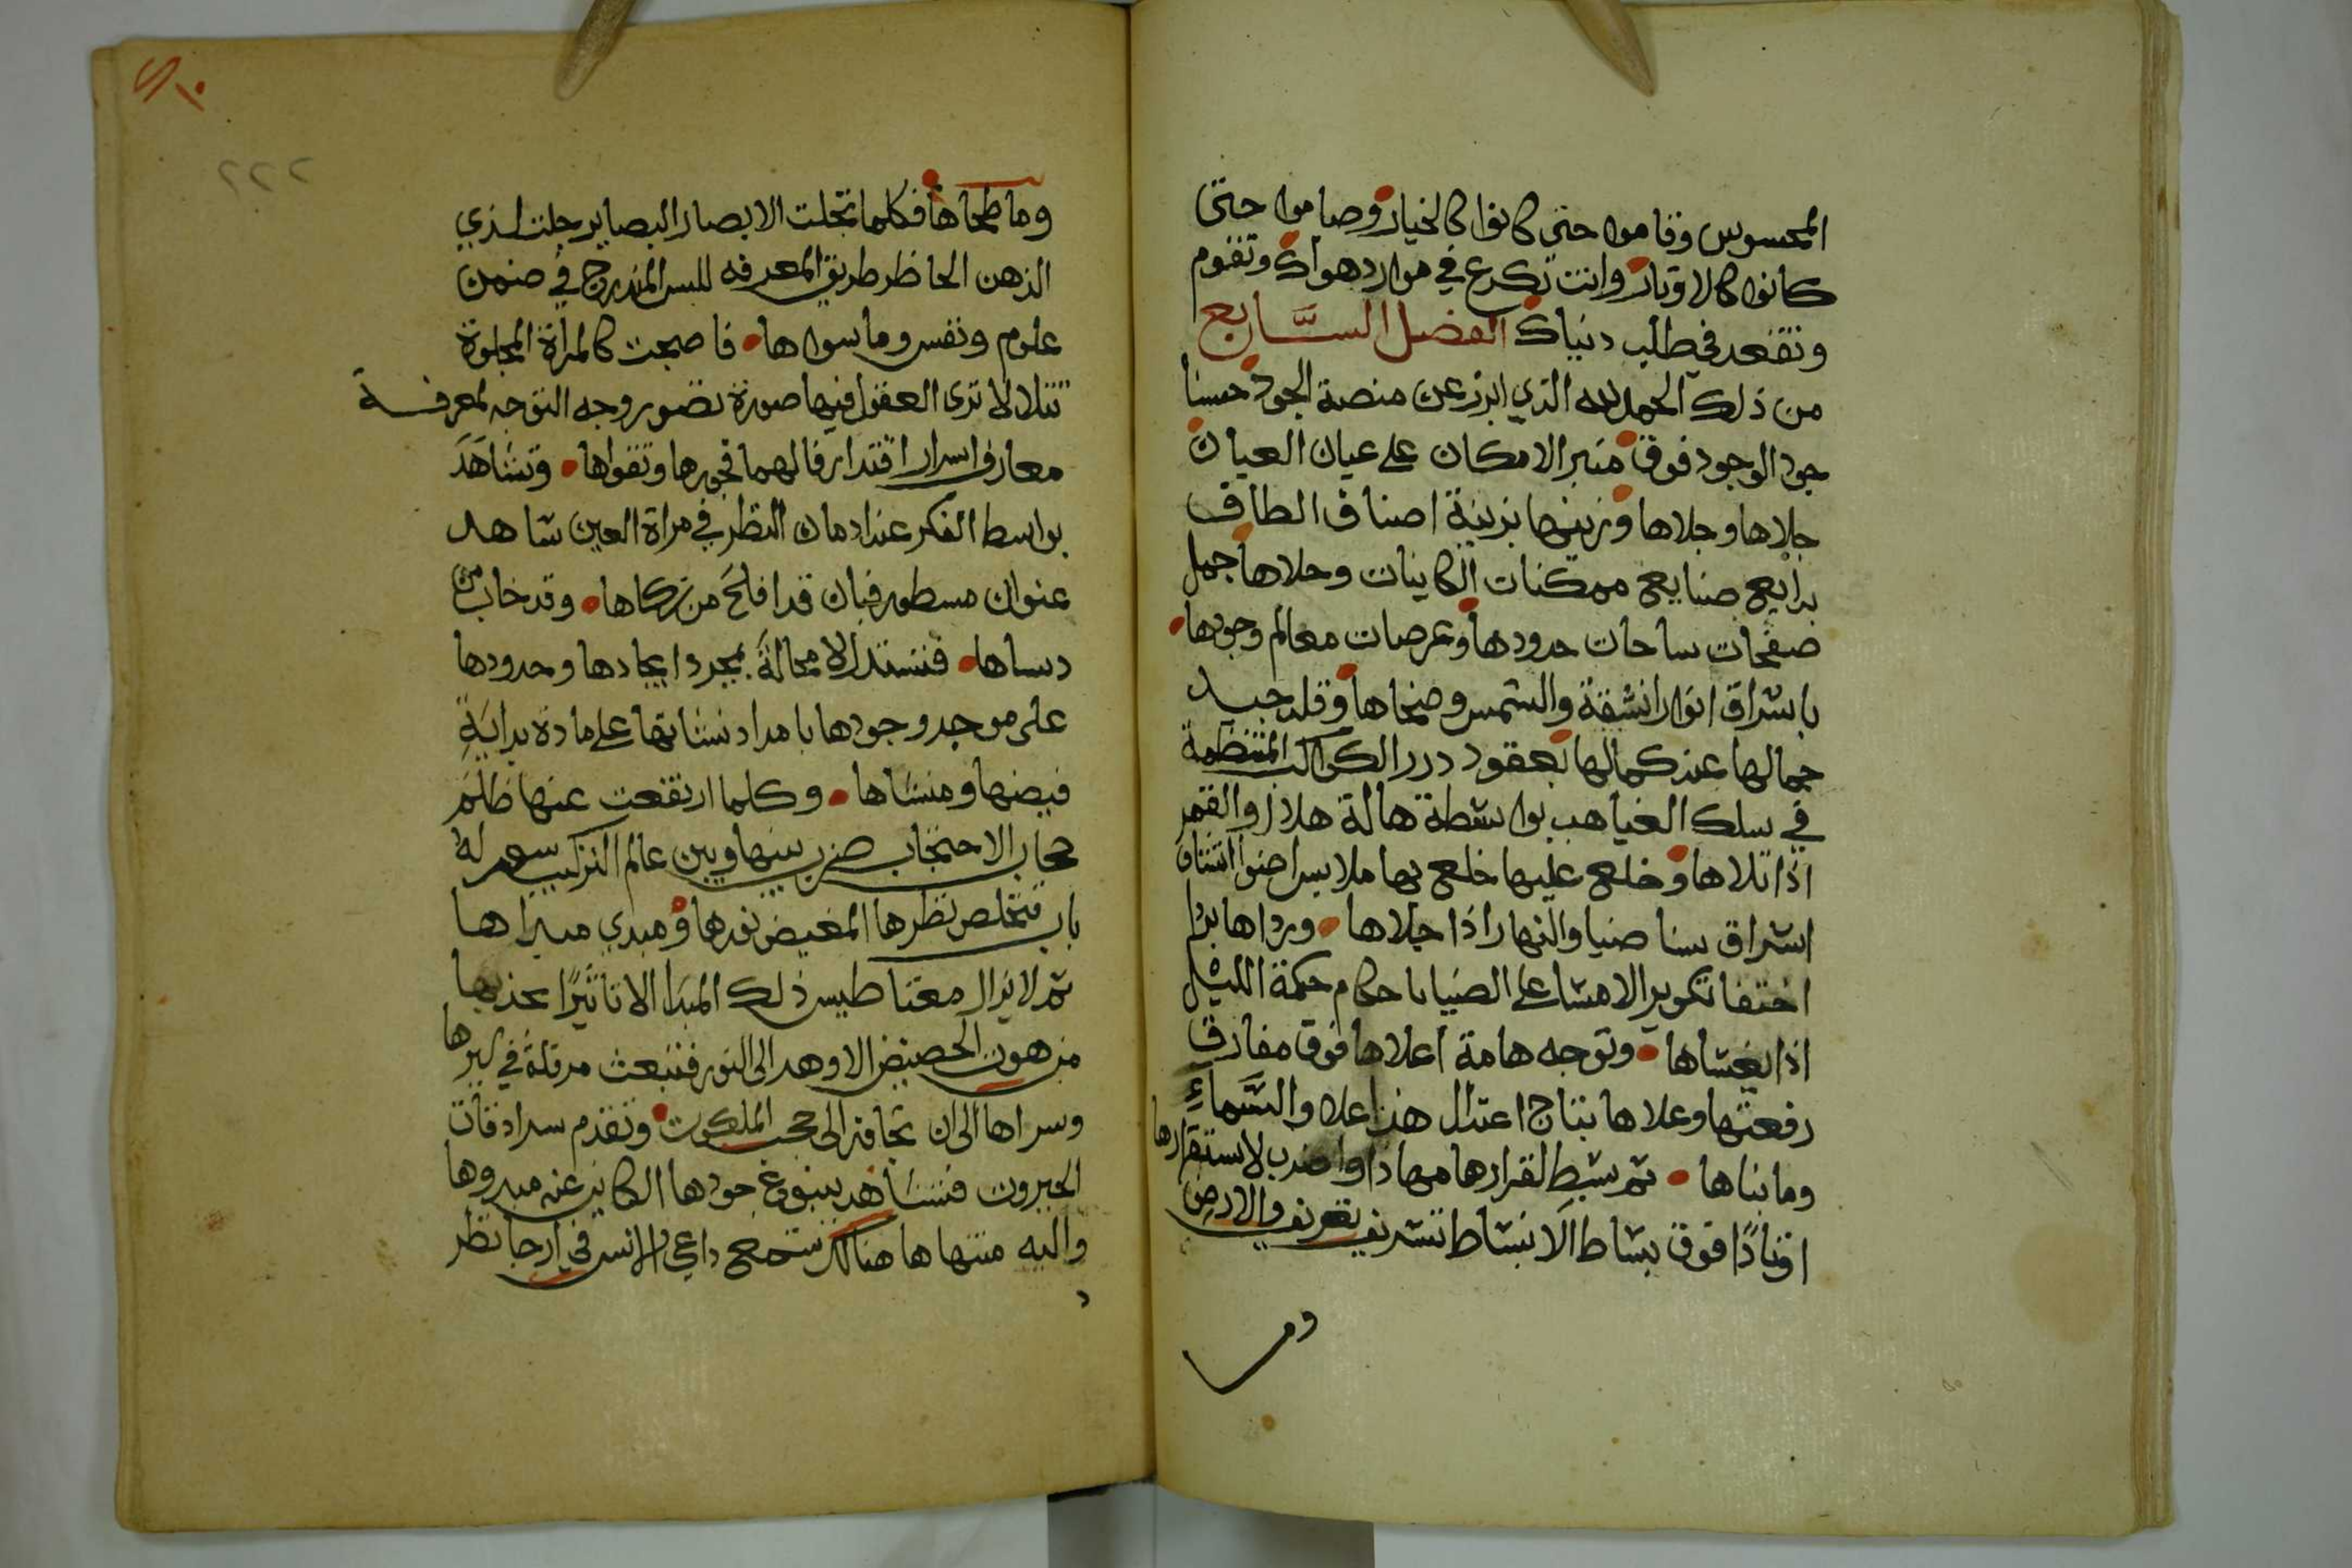 المحسوس وقاموا حتى كانوا كالخيار وصاموا حتى
كانوا كالاوتار وانت تكرع في موارد هواك وتقوم
وتقعد في طلب دنياك الفصل السَّابع
من ذلك الحمد لله الذي ابرز عن منصة الجود حسنا
جود الوجود فوق منبر الامكان على عيان العيان
جلاها وجلاها وزينها بزينة اصناف الطاف
بدايع صنايع ممكنات الكاينات وحلاها جمل
صفحات ساحات حدودها وعرصات معالم وجودها
باشراق انوار اشقة والشمس وضحاها وقلد جيد
جمالها عند كمالها بعقود درر الكواكب المنتظمة
في سلك الغياهب بواسطة هالة هلال والقمر
اذا تلاها وخلع عليها خلع بها ملابس اضوا
اشراق سنا ضيا والنهار اذا جلاها ورداها بردا
اختفا تكوير الامشا على الضيا باحكام حكمة الليل
اذا يغشاها وتوجه هامة اعلاها فوق مفارق
رفعتها وعلاها بتاج اعتدال هذا علا والسَّماءِ
وما بناها ثم بسط لقرارها مهادا واضرب لاستقرارها
اوتادًا فوق بساط الانبساط تشريف تعريف والارض
وما
٢٢٢
وما طحاها فكلما تجلت الابصار البصاير جلت لذي
الذهن الحاظر طريق المعرفه للبس المندرج في ضمن
علوم ونفس وما سواها فاصبحت كالمرأة المجلوة
تتلالا ترى العقول فيها صورة تصور وجه التوجه لمعرفة
معارف اسرار اقتدار فالهمها فجورها وتقواها وتشاهد
بواسط الفكر عند ادمان النظر في مراة العين شاهد
عنوان مسطور فبان قد افلح من زكاها وقد خاب من
دساها فتستدل لا محالة بمجرد ايجادها وحدودها
على موجد وجودها بامداد نشاتها على مادة بداية
فيضها ومنشاها وكلما ارتفعت عنها ظلم
حجاب الاحتجاب ضرب بينها وبين عالم التركيب بسور له
باب فتخلص نظرها المغيض نورها ومبدي مسراها
ثم لا يزال مغناطيس ذلك المبدا الا تاثيرًا يجذبها
من هون الحضيض الاوهد الى النور فتنبعث مرقلة في سيرها
وسراها الى ان تجافته الى حجب الملكوت وتقدم سرادقات
الجبروت فتشاهد ينبوع جودها الكاين عنه مبدوها
واليه منتهاها هنالك تستمع داعي الانس في ارجا نظر